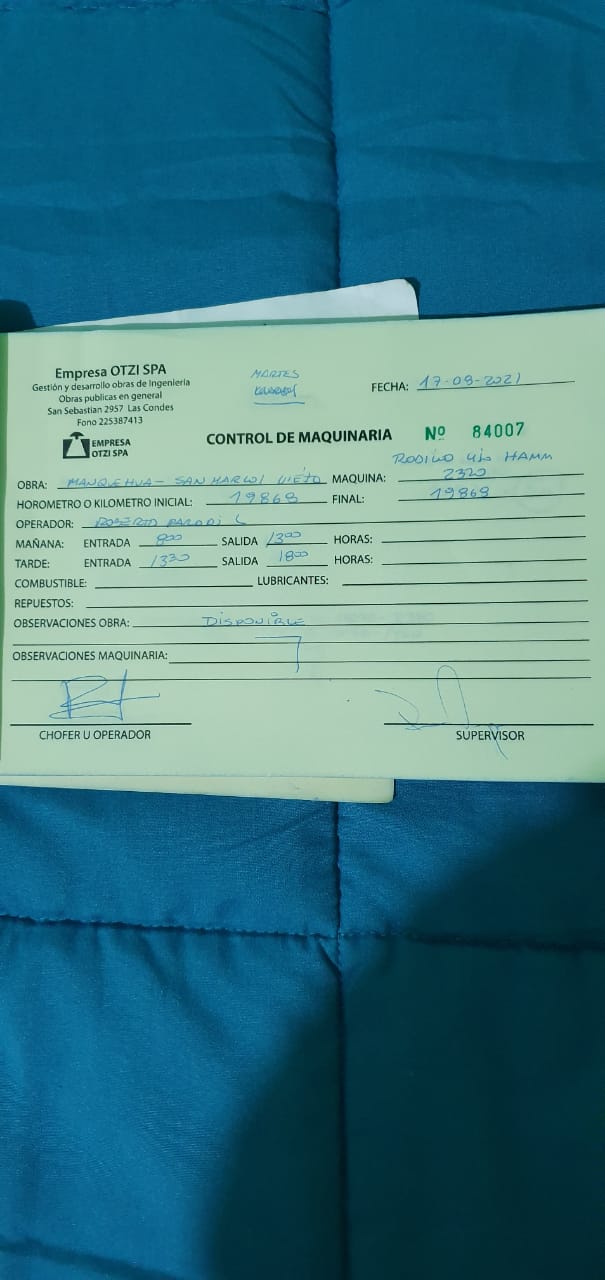 Empresa OTZI SPA
Gestión y desarrollo obras de Ingenieria
Obras publicas en general
San Sebastian 2957 Las Condes
Fono 225387413
EMPRESA
OTZI SPA
MARTES
FECHA: 17-08-2021
CONTROL DE MAQUINARIA Nº 84007
RODILLO HAMM
OBRA: MANQUEHUA - SAN MARCOS VIEJO MAQUINA: 2320
HOROMETRO O KILOMETRO INICIAL: 19868 FINAL: 19868
OPERADOR: ROBERTO PARODI L
MAÑANA: ENTRADA 800 SALIDA 1300 HORAS:
TARDE: ENTRADA 1330 SALIDA 1800 HORAS:
COMBUSTIBLE: LUBRICANTES:
REPUESTOS:
OBSERVACIONES OBRA: DISPONIBLE
OBSERVACIONES MAQUINARIA:
CHOFER U OPERADOR SUPERVISOR